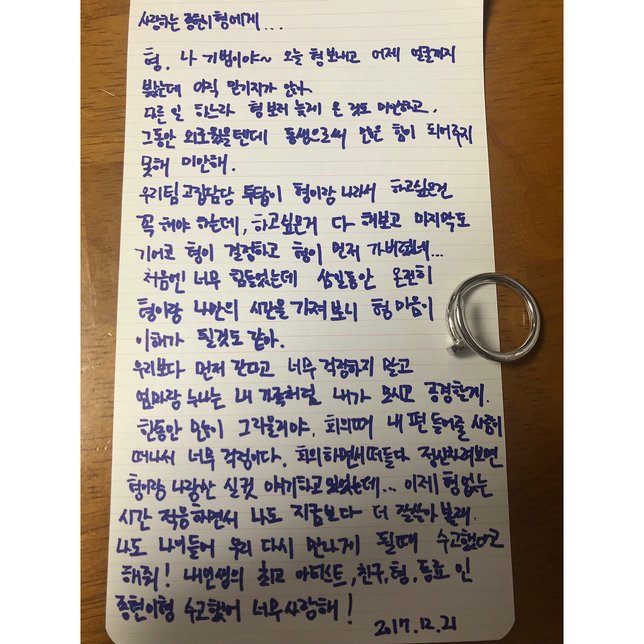 사랑하는 종현이형에게...
형. 나 기범이야~ 오늘 형 보내고 어제 얼굴까지
봤는데 아직 믿기지가 않아.
다른 일 하느라 형보러 늦게 온 것도 미안하고.
그동안 외로웠을텐데 동생으로써 만은 힘이 되어주지
못해 미안해.
우리팀 고집담당 투탑이 형이랑 나라서 하고싶은건
꼭 해야 하는데, 하고싶은거 다 해보고 마지막도
기어코 형이 결정하고 형이 먼저 가버렸네...
처음엔 너무 힘들었는데 삼일동안 온전히
형이랑 나만의 시간을 가져보니 형 마음이
이해가 될것도 같아.
우리보다 먼저 간다고 너무 걱정하지 말고
엄마랑 누나는 내 가족처럼 내가 모시고 공경할게.
한동안 많이 그리울거야. 회의때 내 편 들어줄 사람이
떠나서 너무 걱정이다. 회의하면서 떠들다 정신차려보면
형이랑 나랑만 실컷 얘기하고 있었는데... 이제 형 없는
시간 적응하면서 나도 지금보다 더 잘살아 볼래.
나도 나이들어 우리 다시 만나게 될때 수고했다고
해줘! 내인생의 최고 아티스트, 친구, 형, 동료 인
종현이형 수고했어 너무 사랑해!
2017.12.21